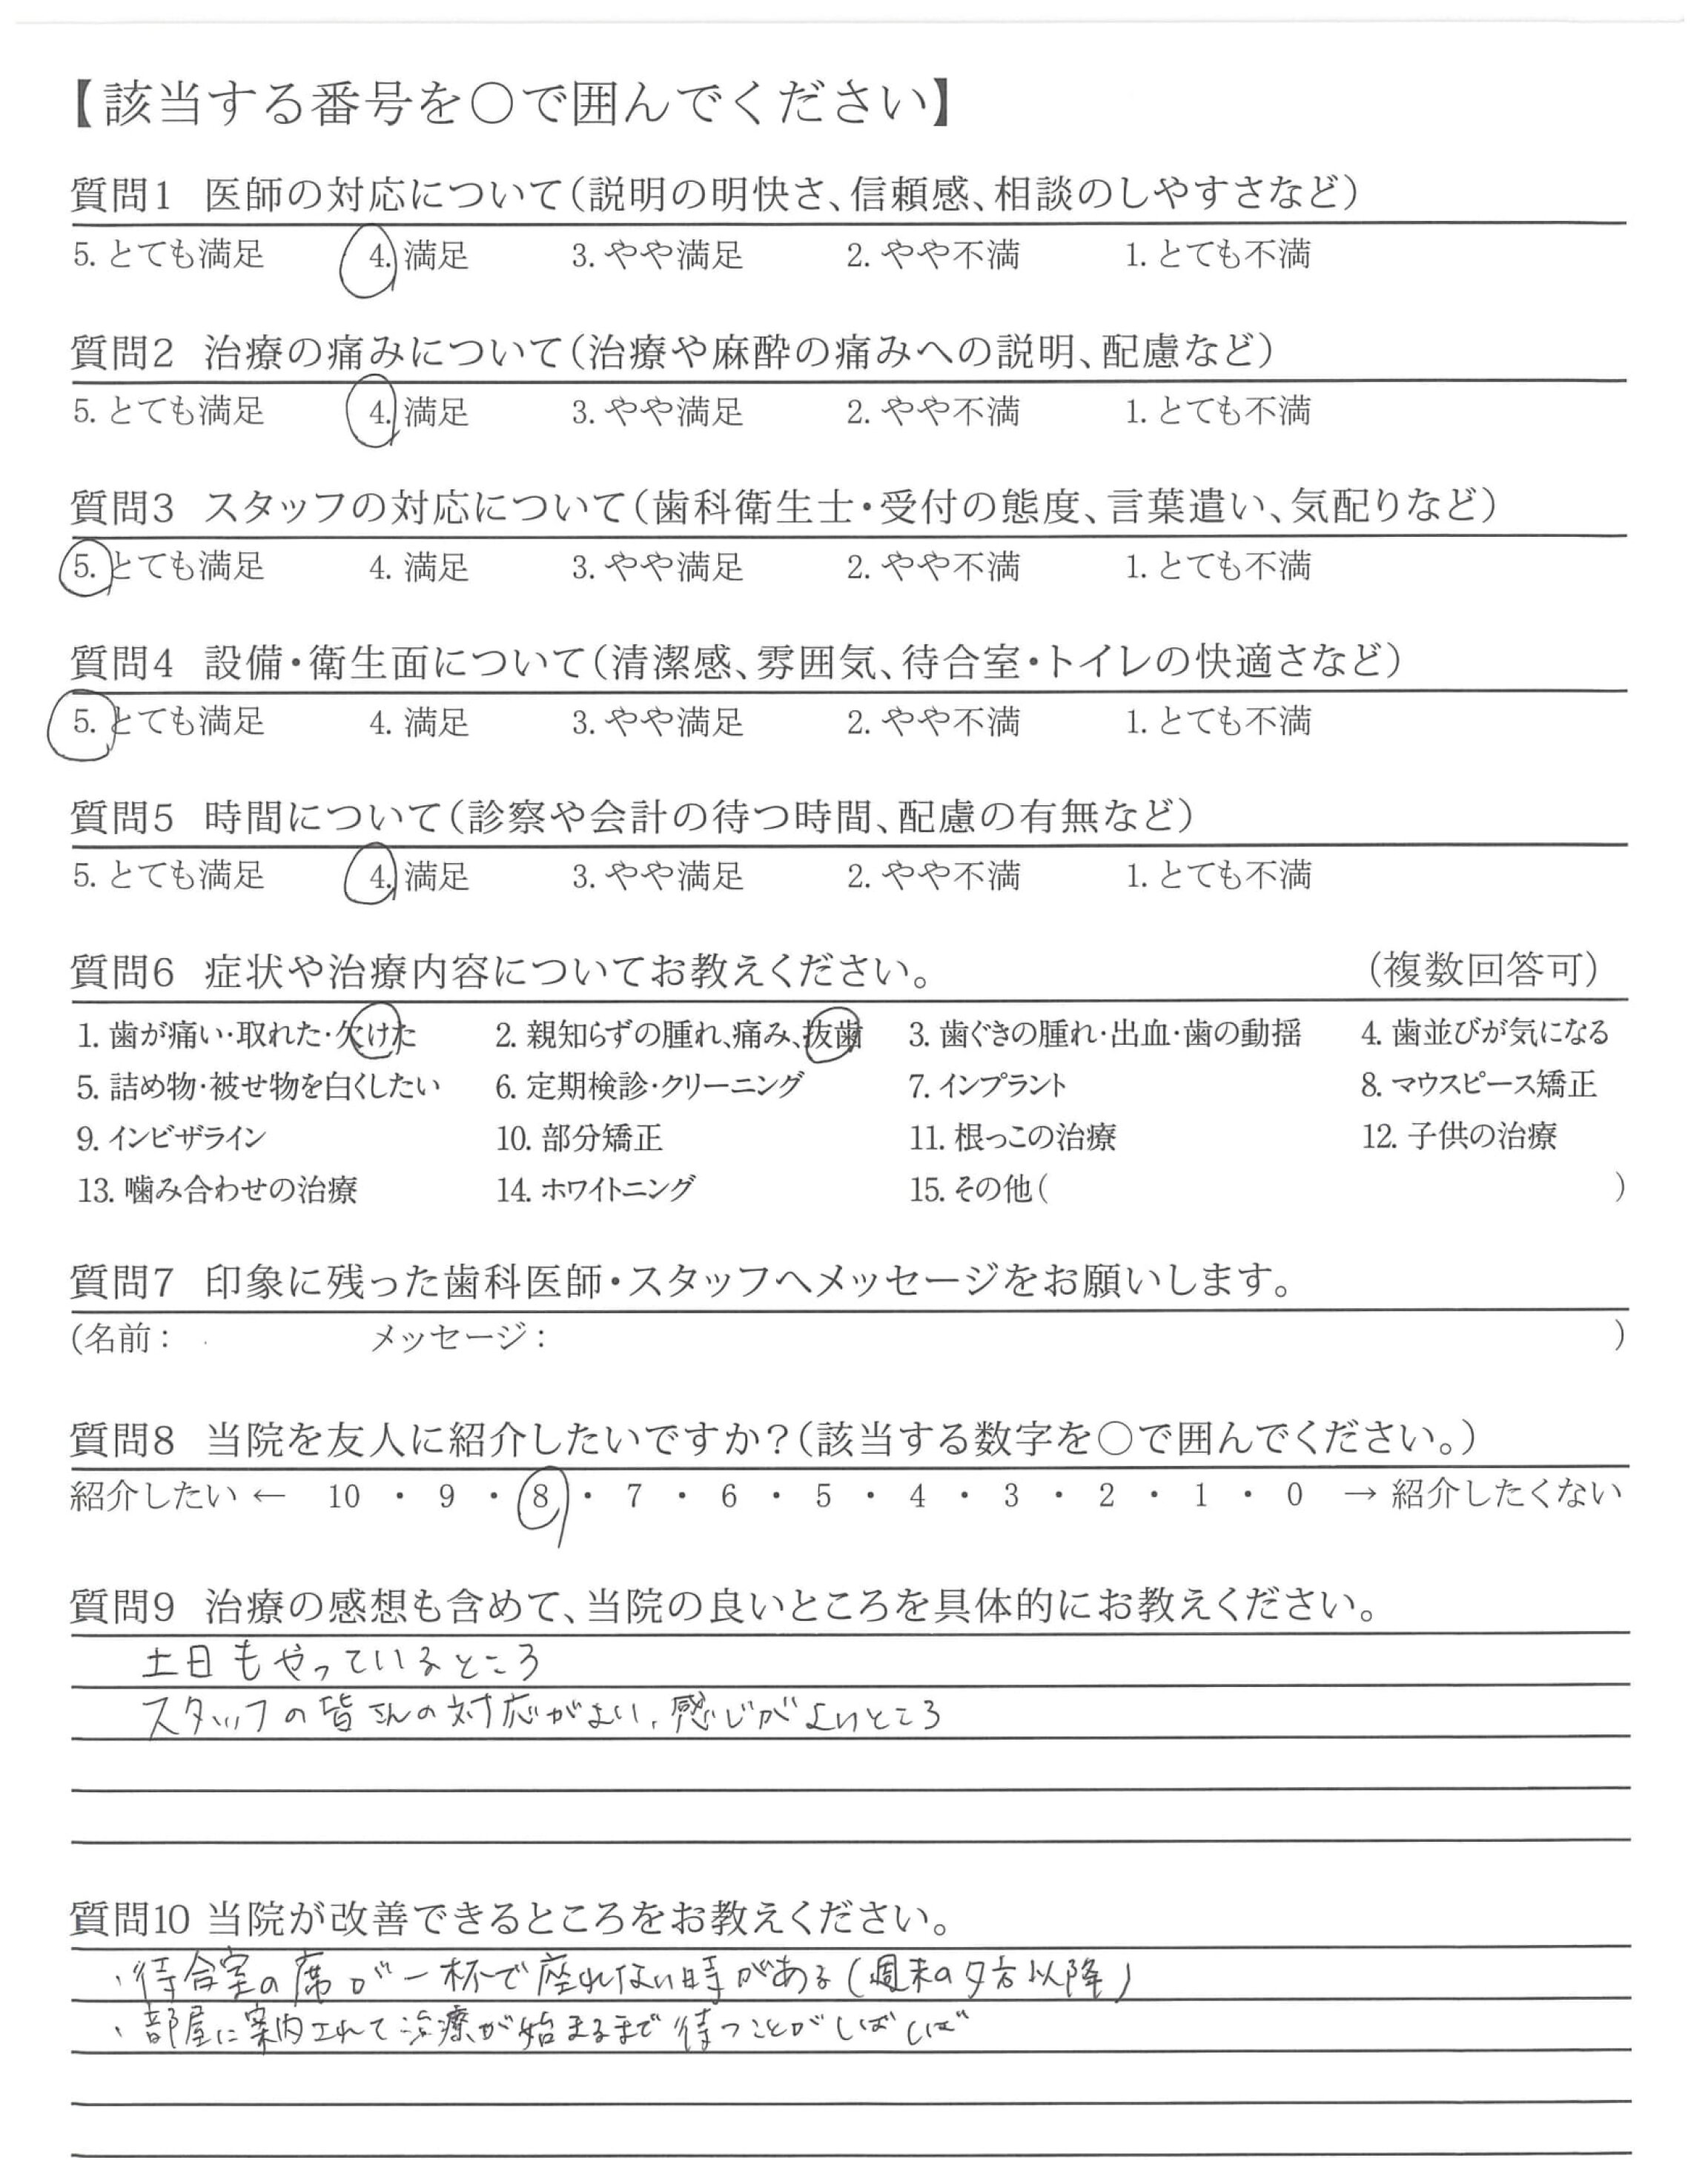 【該当する番号を○で囲んでください】
質問1 医師の対応について（説明の明快さ、信頼感、相談のしやすさなど）
5. とても満足 4. 満足 3. やや満足 2. やや不満 1. とても不満
質問2 治療の痛みについて（治療や麻酔の痛みへの説明、配慮など）
5. とても満足 4. 満足 3. やや満足 2. やや不満 1. とても不満
質問3 スタッフの対応について（歯科衛生士・受付の態度、言葉遣い、気配りなど）
5. とても満足 4. 満足 3. やや満足 2. やや不満 1. とても不満
質問4 設備・衛生面について（清潔感、雰囲気、待合室・トイレの快適さなど）
5. とても満足 4. 満足 3. やや満足 2. やや不満 1. とても不満
質問5 時間について（診察や会計の待つ時間、配慮の有無など）
5. とても満足 4. 満足 3. やや満足 2. やや不満 1. とても不満
質問6 症状や治療内容についてお教えください。 （複数回答可）
1. 歯が痛い・取れた・欠けた 2. 親知らずの腫れ、痛み、抜歯 3. 歯ぐきの腫れ・出血・歯の動揺 4. 歯並びが気になる
5. 詰め物・被せ物を白くしたい 6. 定期検診・クリーニング 7. インプラント 8. マウスピース矯正
9. インビザライン 10. 部分矯正 11. 根っこの治療 12. 子供の治療
13. 噛み合わせの治療 14. ホワイトニング 15. その他（ ）
質問7 印象に残った歯科医師・スタッフへメッセージをお願いします。
（名前： メッセージ： ）
質問8 当院を友人に紹介したいですか？（該当する数字を○で囲んでください。）
紹介したい ← 10 ・ 9 ・ 8 ・ 7 ・ 6 ・ 5 ・ 4 ・ 3 ・ 2 ・ 1 ・ 0 → 紹介したくない
質問9 治療の感想も含めて、当院の良いところを具体的にお教えください。
土日もやっているところ
スタッフの皆さんの対応がよい、感じがよいところ
質問10 当院が改善できるところをお教えください。
・待合室の席が一杯で座れない時がある（週末の夕方以降）
・部屋に案内されて治療が始まるまで待つことがしばしば